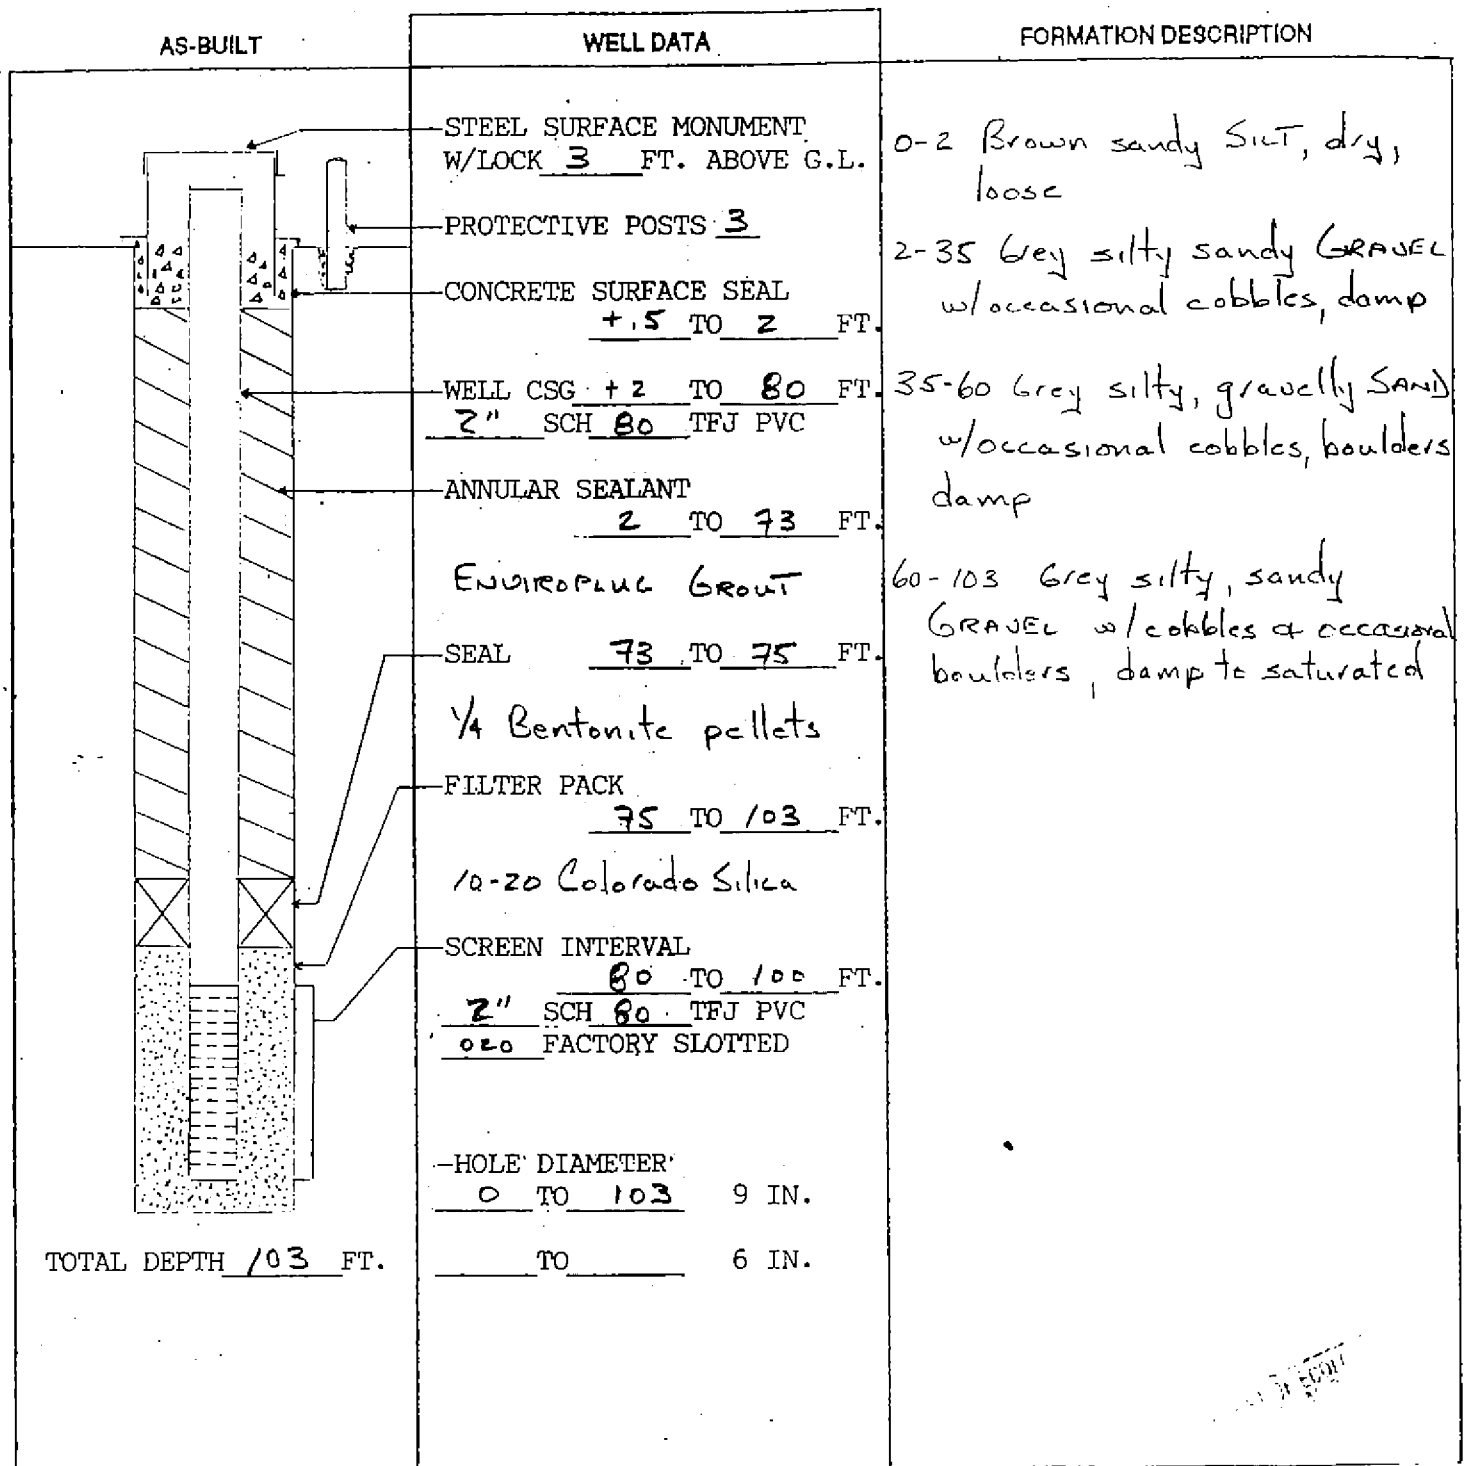 AS-BUILT
WELL DATA
FORMATION DESCRIPTION
STEEL SURFACE MONUMENT
W/LOCK 3 FT. ABOVE G.L.
PROTECTIVE POSTS 3
CONCRETE SURFACE SEAL
+.5 TO 2 FT.
WELL CSG +2 TO 80 FT.
2" SCH 80 TFJ PVC
ANNULAR SEALANT
2 TO 73 FT.
ENVIROPLUG GROUT
SEAL 73 TO 75 FT.
1/4 Bentonite pellets
FILTER PACK
75 TO 103 FT.
10-20 Colorado Silica
SCREEN INTERVAL
80 TO 100 FT.
2" SCH 80 TFJ PVC
020 FACTORY SLOTTED
HOLE DIAMETER
0 TO 103 9 IN.
TO 6 IN.
TOTAL DEPTH 103 FT.
0-2 Brown sandy SILT, dry,
loose
2-35 Grey silty sandy GRAVEL
w/occasional cobbles, damp
35-60 Grey silty, gravelly SAND
w/occasional cobbles, boulders
damp
60-103 Grey silty, sandy
GRAVEL w/cobbles & occasional
boulders, damp to saturated